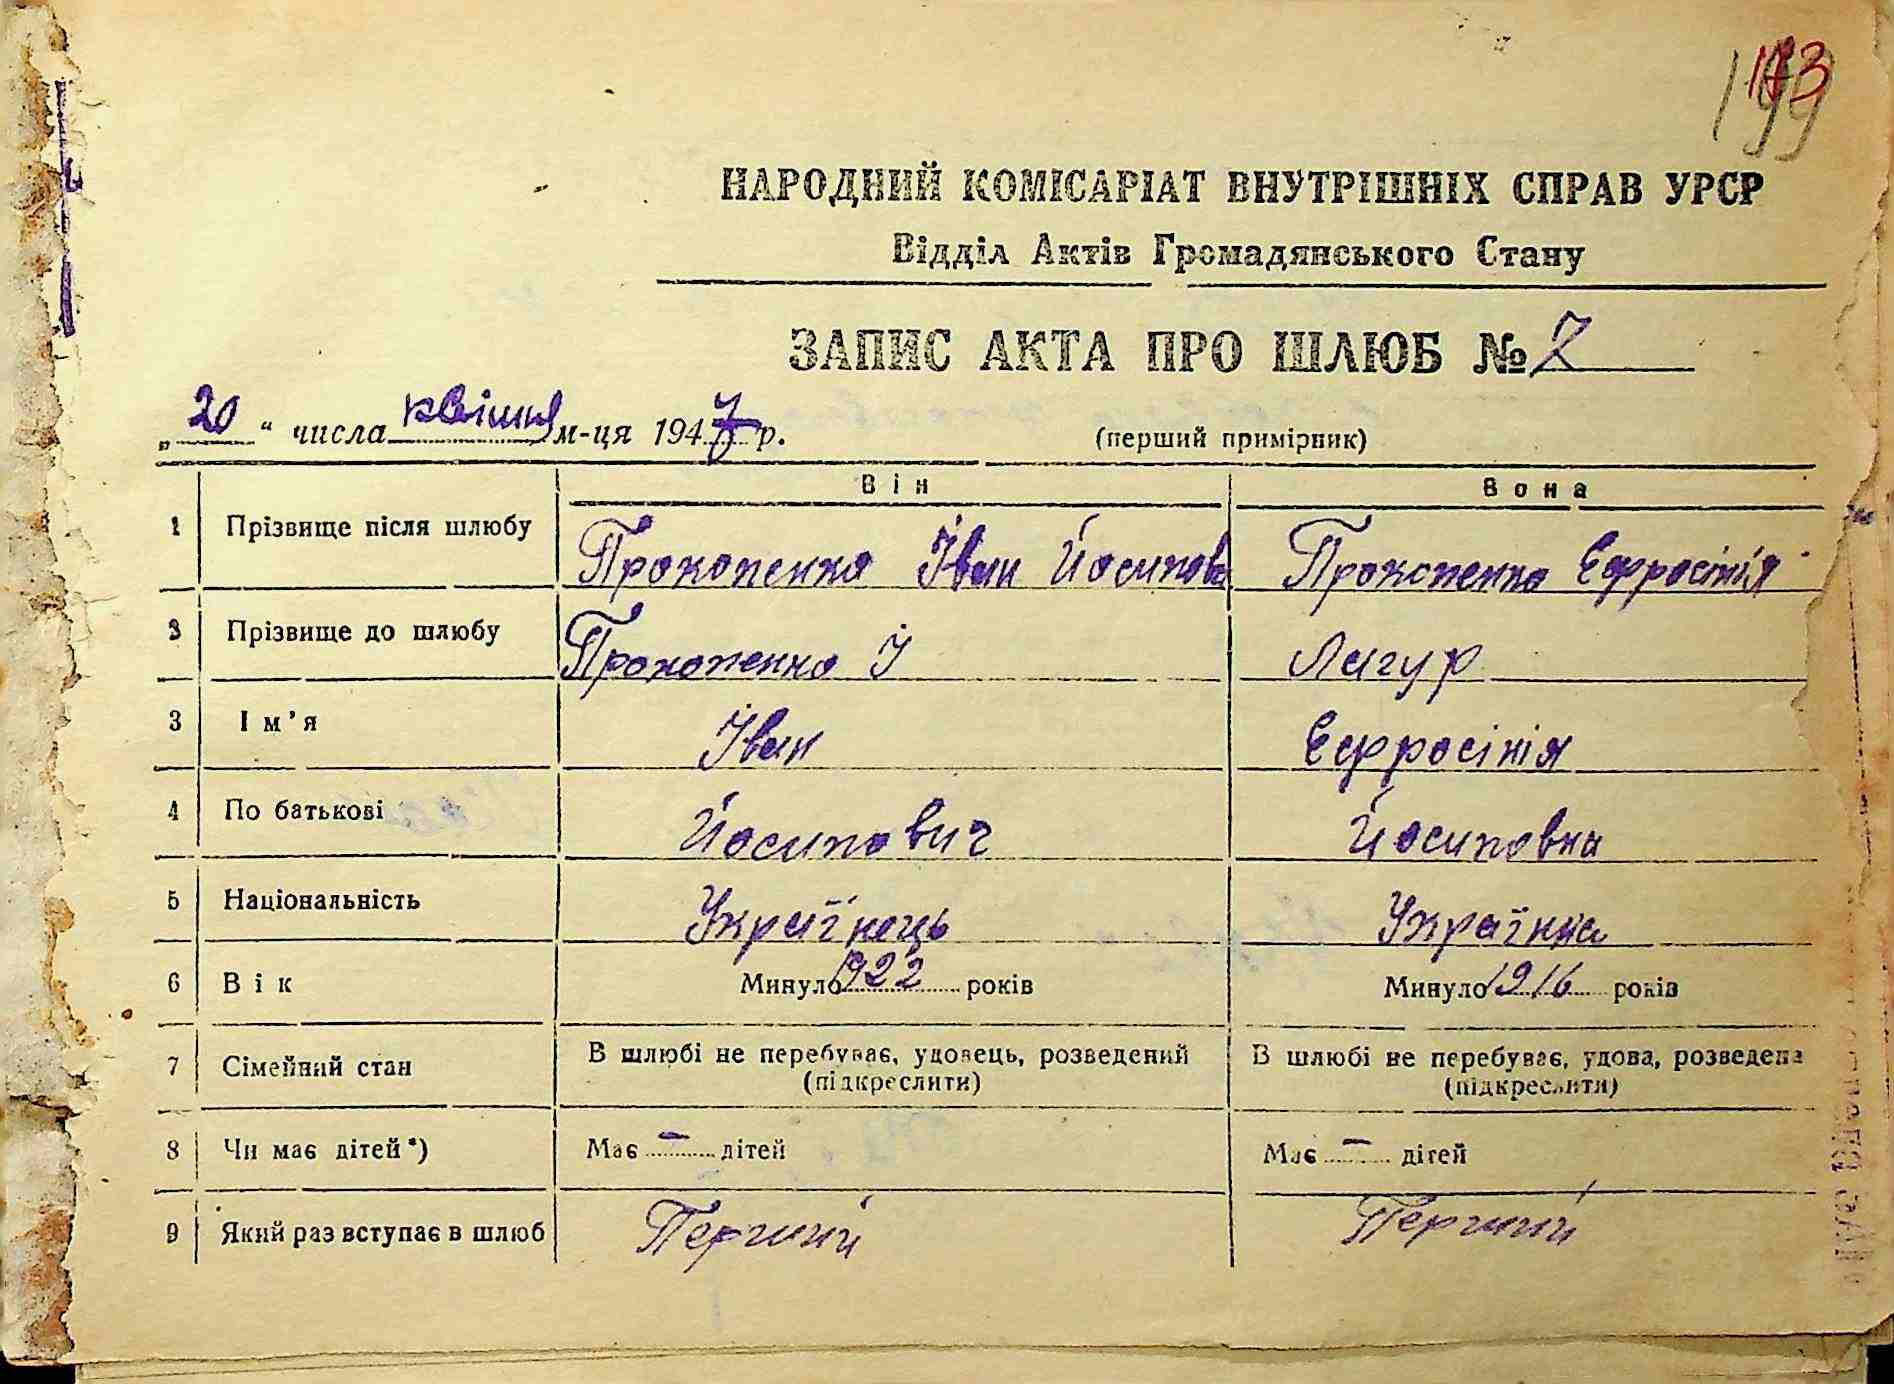 173
199
НАРОДНИЙ КОМІСАРІАТ ВНУТРІШНІХ СПРАВ УРСР
Відділ Актів Громадянського Стану
ЗАПИС АКТА ПРО ШЛЮБ № 7
„20“ числа квітня м-ця 1947 р. (перший примірник)
Він Вона
1 Прізвище після шлюбу Прокопенко Іван Йосипов Прокопенко Ефросінія
2 Прізвище до шлюбу Прокопенко І Лигур
3 Ім’я Іван Ефросінія
4 По батькові Йосипович Йосиповна
5 Національність Українець Українка
6 Вік Минуло 1922 років Минуло 1916 років
7 Сімейний стан В шлюбі не перебуває, удовець, розведений В шлюбі не перебуває, удова, розведена
(підкреслити) (підкреслити)
8 Чи має дітей*) Має — дітей Має — дітей
9 Який раз вступає в шлюб Перший Перший